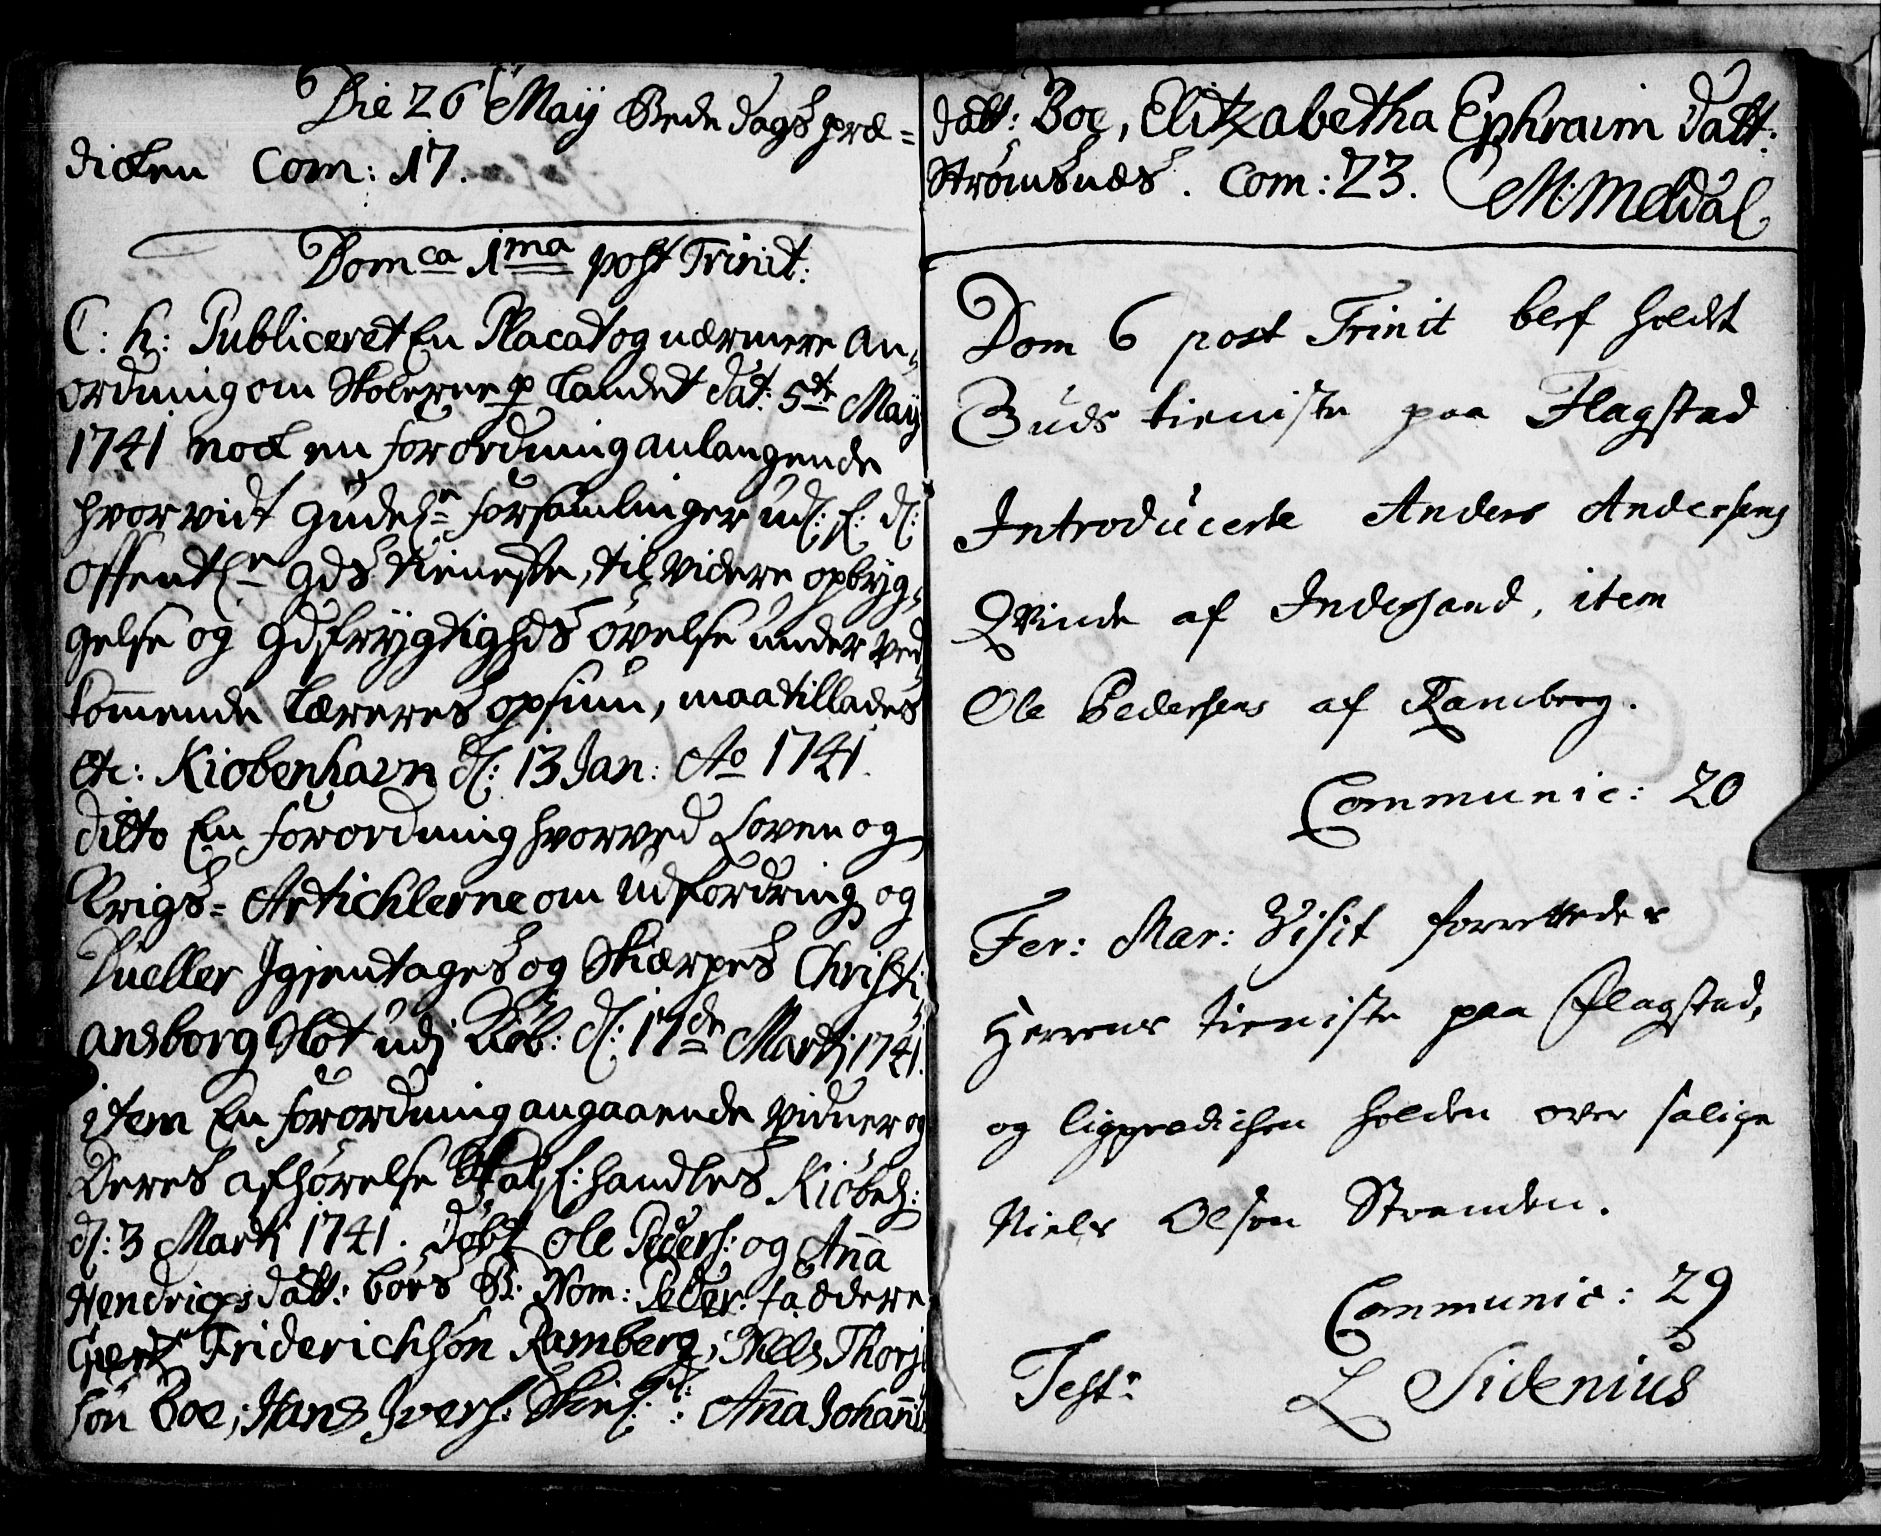 Die 26 Maÿ Bededags præ=
dicken Com: 17.
Dom ca 1ma post Trinit:
C: h: Publiceret En Placat og nærmere an-
ordning om Skolerne p landet dat: 5te Maÿ
1741 nock en forordning anlangende
hvorvidt gudel: forsamlinger ud: f: d:
offentl: gds tieneste, til videre opbÿg-
gelse og gdsfrÿgtighds øvelse under ved-
kommende læreres opsiun, maa tillades
etc: Kiøbenhavn d: 13 Jan: Ao 1741.
ditto En forordning hvorved Loven og
Krigs= Artichlerne om udfordring og
Dueller Igientages og Skiærpes Christi-
ansborg Slot udj Kiøb: d: 17de Martj 1741.
item En forordning angaaende vidner og
deres afhørelse Skal f: handles Kiøbh:
d: 3 Martj 1741. døbt Ole Peders: og Aña
Hendrigsdatt: børs B: Nom: Peder: faddere
Giert Friderichsön Ramberg; Niels Thorj
sön Boe; Hans Ivers: Aña Johañis
datt: Boe, Elitzabetha Ephraim datt:
Strømsnæs. Com: 23. M: Meldal
Dom 6 post Trinit blef holdt
Guds tieniste paa Flagstad
Introducerte Anders Andersens
Qvinde af Indersand, item
Ole Pedersens af Ramberg.
Communic: 20
Fer: Mar: Visit forrettedes
Herrens tieniste paa Flagstad,
og ligprædichen holden over salige
Niels Olsen Stranden.
Communic: 29
Test: L Sidenius